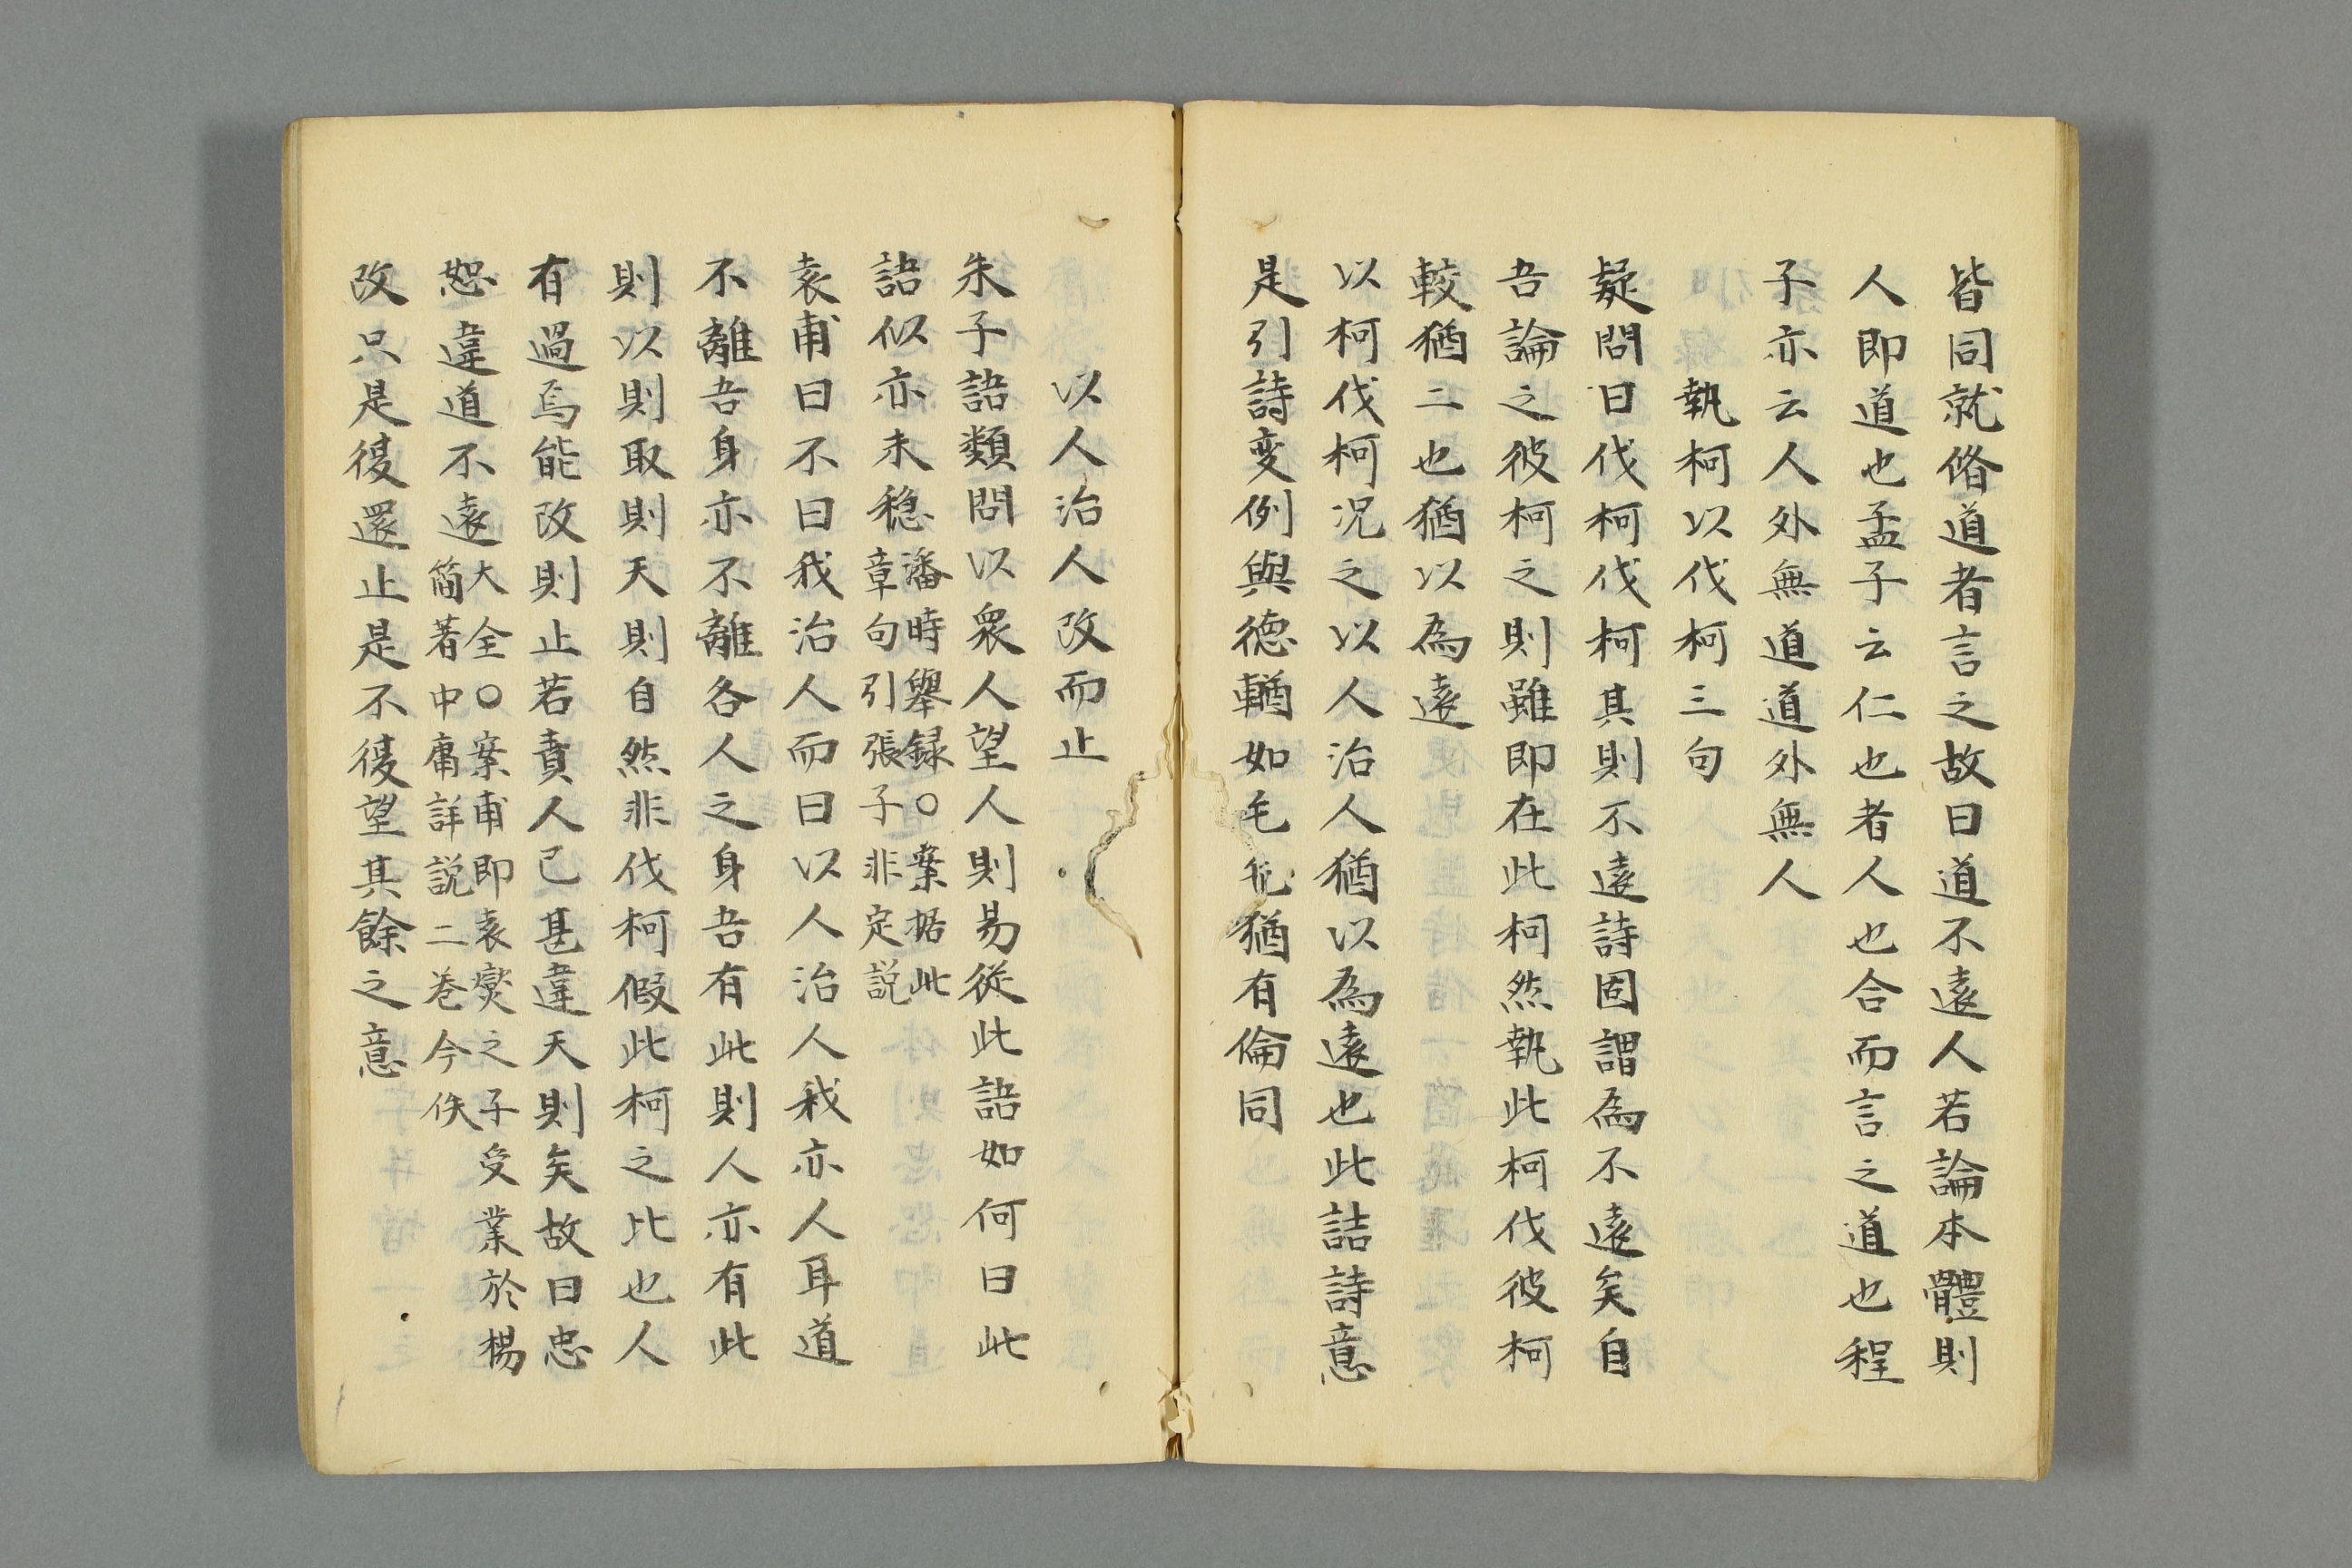 皆同就脩道者言之故曰道不遠人若論本體則
人即道也孟子云仁也者人也合而言之道也程
子亦云人外無道道外無人
執柯以伐柯三句
疑問曰伐柯伐柯其則不遠詩固謂為不遠矣自
吾論之彼柯之則雖即在此柯然執此柯伐彼柯
較猶二也猶以為遠
以柯伐柯況之以人治人猶以為遠也此詰詩意
是引詩変例與德輶如毛毛猶有倫同
以人治人改而止
朱子語類問以衆人望人則易從此語如何曰此
語似亦未稳
潘時舉録〇案据此
章句引張子非定説
袁甫曰不曰我治人而曰以人治人我亦人耳道
不離吾身亦不離各人之身吾有此則人亦有此
則以則取則天則自然非伐柯假此柯之比也人
有過焉能改則止若責人已甚違天則矣故曰忠
恕違道不遠
大全〇案甫即袁燮之子受業於楊
簡著中庸詳説二巻今佚
改只是復還止是不復望其餘之意